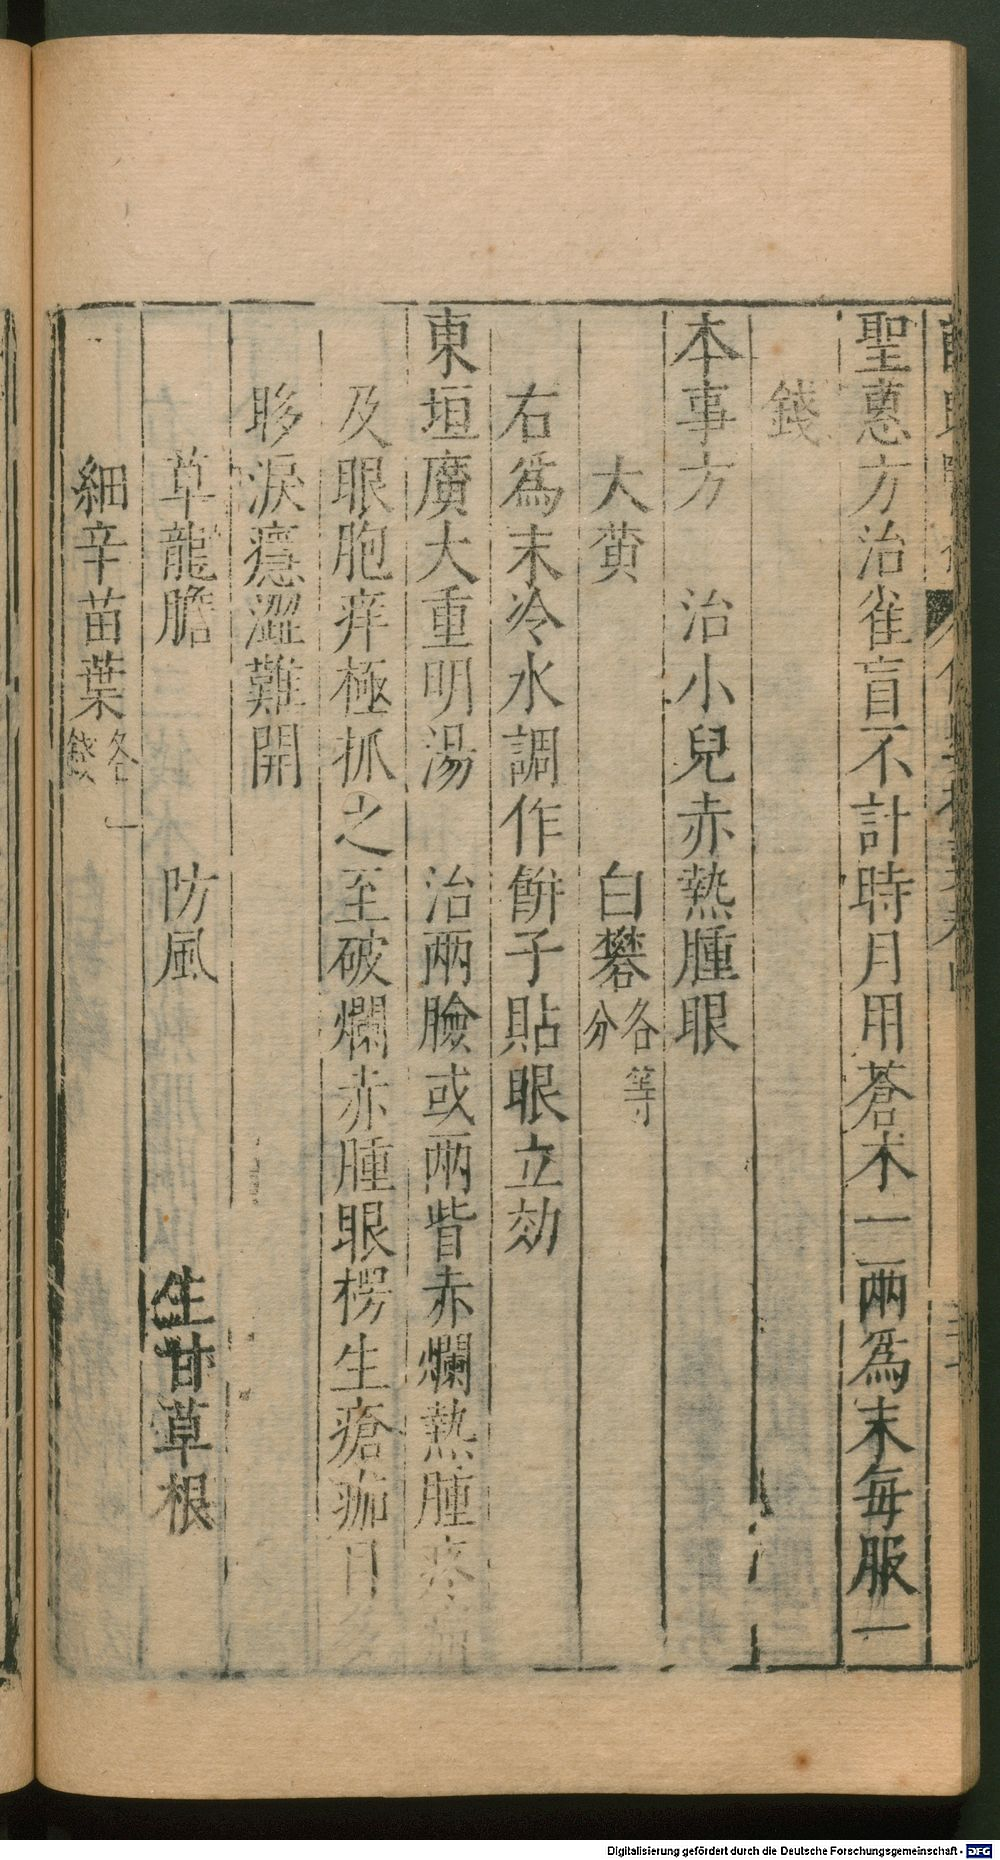 聖惠方治雀盲不計時月用蒼木一兩為末每服一
錢
本事方　治小兒赤熱腫眼
大黄　白礬各等分
右為末冷水調作餅子貼眼立効
東垣廣大重明湯　治兩臉或兩眥赤爛熱腫疼
及眼胞痒極抓之至破爛赤腫眼楞生瘡痂目
眵淚癮澀難開
草龍膽　防風　生甘草根
細辛苗葉各一錢
Digitalisierung gefördert durch die Deutsche Forschungsgemeinschaft - DFG